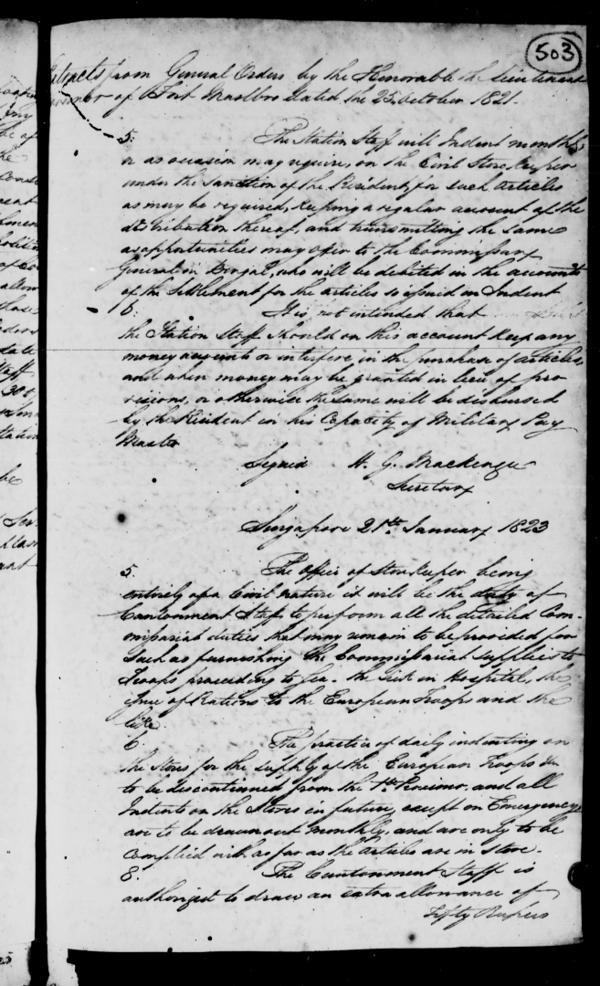 503
Extracts from General Orders by the Honorable the Lieutenant
Governor of Fort Marlbro dated the 25 October 1821.
5. The Station Staff will Indent monthly
or as occasion may require, on the Civil Store Keeper
under the Sanction of the Resident, for such articles
as may be required, keeping a regular account of the
distribution thereof, and transmitting the same
as opportunities may offer to the Commissary
General in Bengal, who will be debited in the accounts
of the Settlement for the articles issued on Indent
6. It is not intended that
the Station Staff should on this account keep any
money accounts or interfere in the purchase of articles
and when money may be granted in lieu of pro
visions, or otherwise the same will be disbursed
by the Resident in his Capacity of Military Pay
Master
Signed H. G. Mackenzie
Secretary
Singapore 21st January 1823
5. The Office of Store Keeper being
entirely of a Civil nature it will be the duty of
Cantonment Staff to perform all the detailed Com-
missariat duties that may remain to be provided for
such as furnishing the Commissariat supplies to
Troops proceeding to Sea. the Sick in Hospital, the
issue of Rations to the European Troops and the
like.
6. The practice of daily indenting on
the stores for the supply of the European Troops is
to be discontinued from the 1st Proximo, and all
Indents on the Stores in future, except on Emergency,
are to be drawn out monthly, and are only to be
complied with as far as the articles are in store.
8. The Cantonment Staff is
authorized to draw an extra allowance of
Fifty Rupees